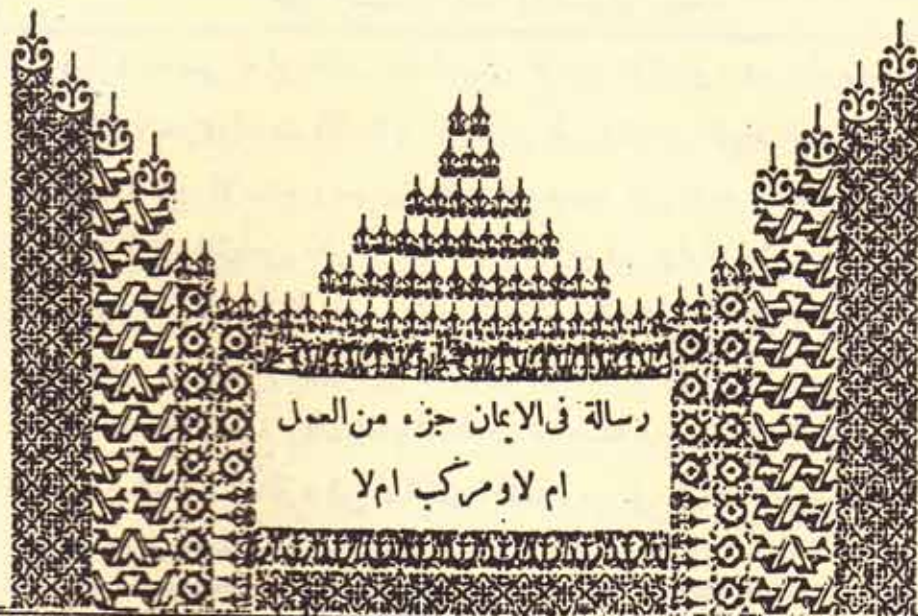 رسالة فى الايمان جزء من العمل
ام لا و مركب ام لا